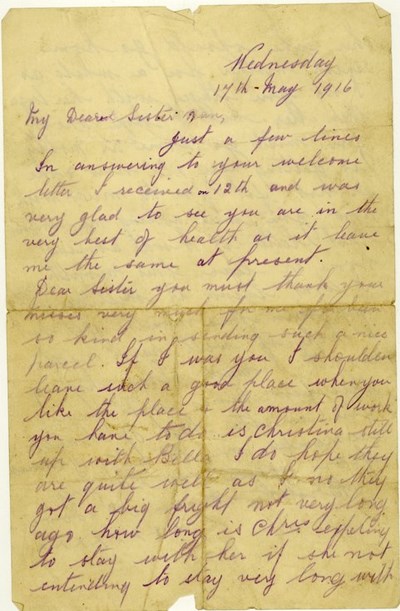 Wednesday
17th - May 1916
My Dear Sister
Just a few lines
In answering to your welcome
letter I received on 12th and was
very glad to see you are in the
very best of health as it leave
me the same at present.
Dear Sister you must thank your
misses very much for me for
so kind in sending such a nice
parcel. If I was you I shoulden
leave such a good place when you
like the place the amount of work
you have to do is Christina still
up with Bella I do hope they
are quite well as I no they
got a big fright not very long
ago how long is Chris
to stay with her if she not
entending to stay very long with